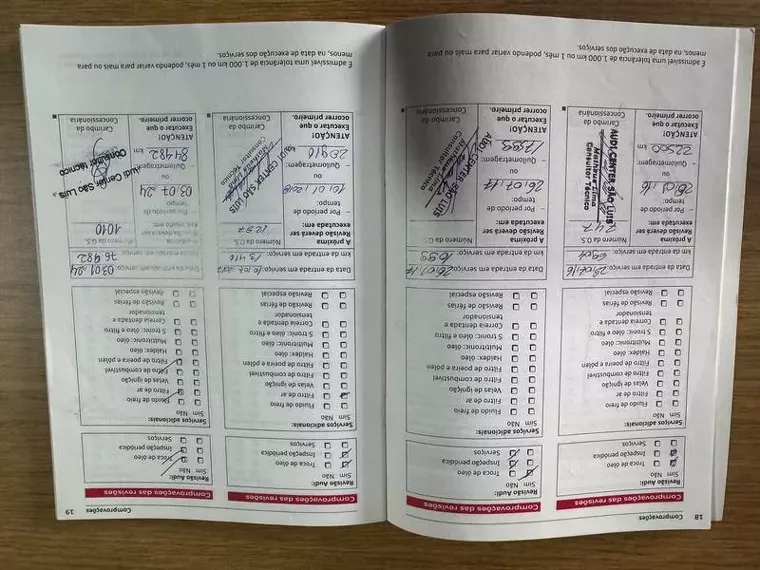 18
Comprovações
Comprovações das revisões
Revisão Audi:
Sim Não
Troca de óleo
Inspeção periódica
Serviços
Serviços adicionais:
Sim Não
Fluido de freio
Filtro de ar
Velas de ignição
Filtro de combustível
Filtro de poeira e pólen
Haldex: óleo
Multitronic: óleo
S tronic: óleo e filtro
Correia dentada e
tensionador
Revisão de férias
Revisão especial
Data da entrada em serviço:
km da entrada em serviço:
A próxima
Revisão deverá ser
executada em:
– Por período de
tempo:
ou
– Quilometragem:
22500 km
ATENÇÃO!
Executar o que
ocorrer primeiro.
Número da O.S.
747
AUDI CENTER SÃO LUIS
Matheus Lima
Consultor Técnico
Carimbo da
Concessionária
Comprovações das revisões
Revisão Audi:
Sim Não
Troca de óleo
Inspeção periódica
Serviços
Serviços adicionais:
Sim Não
Fluido de freio
Filtro de ar
Velas de ignição
Filtro de combustível
Filtro de poeira e pólen
Haldex: óleo
Multitronic: óleo
S tronic: óleo e filtro
Correia dentada e
tensionador
Revisão de férias
Revisão especial
Data da entrada em serviço: 26/01/17
km da entrada em serviço:
A próxima
Revisão deverá ser
executada em:
– Por período de
tempo:
26.07.17
ou
– Quilometragem:
km
ATENÇÃO!
Executar o que
ocorrer primeiro.
Número da O.S.
AUDI CENTER SÃO LUIS
Consultor Técnico
Carimbo da
Concessionária
É admissível uma tolerância de 1.000 km ou 1 mês, podendo variar para mais ou para
menos, na data de execução dos serviços.
Comprovações
19
Comprovações das revisões
Revisão Audi:
Sim Não
Troca de óleo
Inspeção periódica
Serviços
Serviços adicionais:
Sim Não
Fluido de freio
Filtro de ar
Velas de ignição
Filtro de combustível
Filtro de poeira e pólen
Haldex: óleo
Multitronic: óleo
S tronic: óleo e filtro
Correia dentada e
tensionador
Revisão de férias
Revisão especial
Data da entrada em serviço:
km da entrada em serviço: 13416
A próxima
Revisão deverá ser
executada em:
– Por período de
tempo:
ou
– Quilometragem:
20910 km
ATENÇÃO!
Executar o que
ocorrer primeiro.
Número da O.S.
1237
AUDI CENTER SÃO LUIS
Consultor Técnico
Carimbo da
Concessionária
Comprovações das revisões
Revisão Audi:
Sim Não
Troca de óleo
Inspeção periódica
Serviços
Serviços adicionais:
Sim Não
Fluido de freio
Filtro de ar
Velas de ignição
Filtro de combustível
Filtro de poeira e pólen
Haldex: óleo
Multitronic: óleo
S tronic: óleo e filtro
Correia dentada e
tensionador
Revisão de férias
Revisão especial
Data da entrada em serviço: 03.01.24
km da entrada em serviço: 76482
A próxima
Revisão deverá ser
executada em:
– Por período de
tempo:
03.07.24
ou
– Quilometragem:
84482 km
ATENÇÃO!
Executar o que
ocorrer primeiro.
Número da O.S.
1010
Audi Center São Luis
Consultor técnico
Carimbo da
Concessionária
É admissível uma tolerância de 1.000 km ou 1 mês, podendo variar para mais ou para
menos, na data de execução dos serviços.